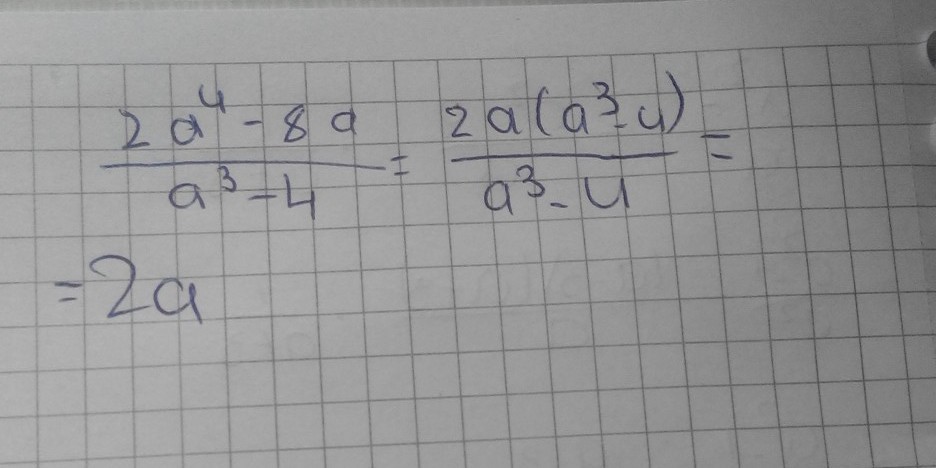 2a⁴-8a/a³-4 = 2a(a³-4)/a³-4 =
=2a